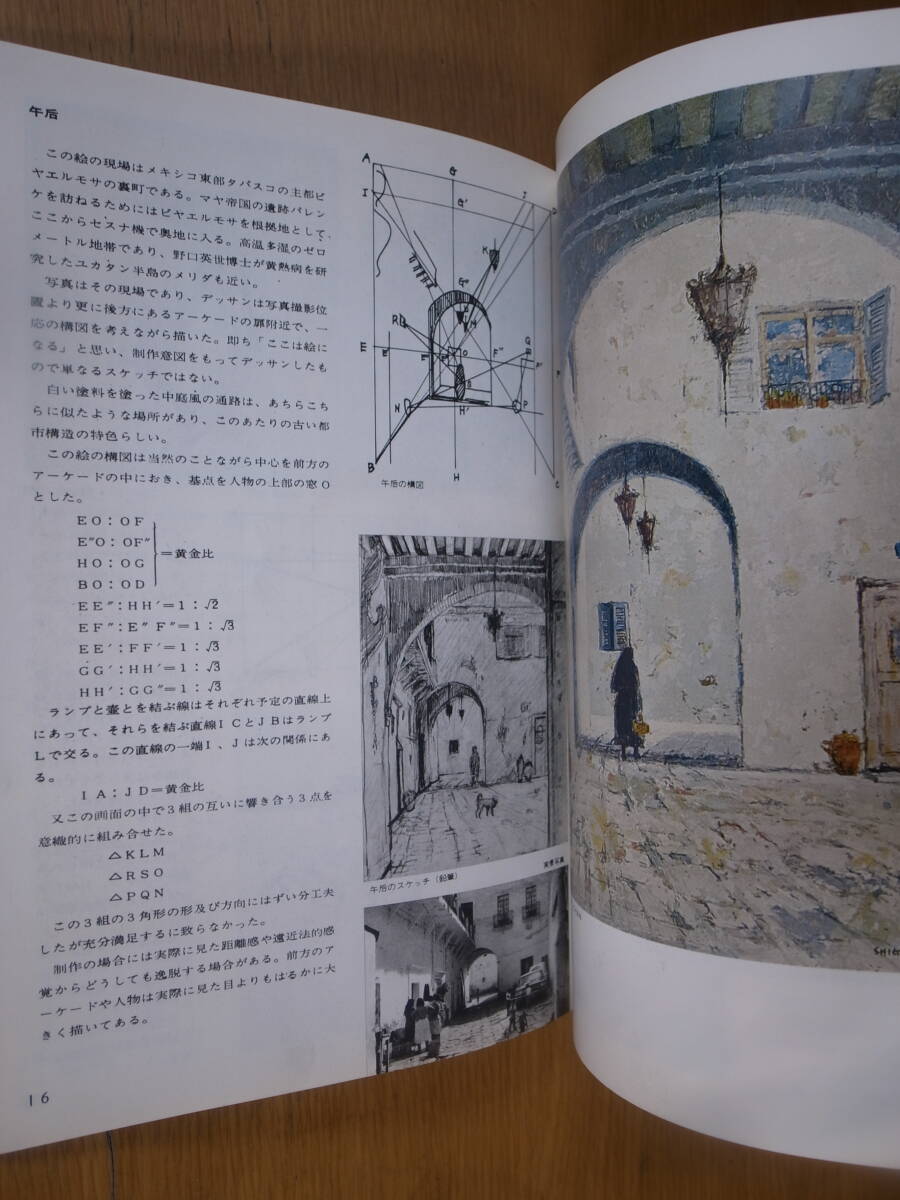 午后
この絵の現場はメキシコ東部タバスコの主都ビ
ヤエルモサの裏町である。マヤ帝国の遺跡パレン
ケを訪ねるためにはビヤエルモサを根拠地として
ここからセスナ機で奥地に入る。高温多湿のゼロ
メートル地帯であり、野口英世博士が黄熱病を研
究したユカタン半島のメリダも近い。
写真はその現場であり、デッサンは写真撮影位
置より更に後方にあるアーケードの扉附近で、一
応の構図を考えながら描いた。即ち「ここは絵に
なる」と思い、制作意図をもってデッサンしたも
ので単なるスケッチではない。
白い塗料を塗った中庭風の通路は、あちらこち
らに似たような場所があり、このあたりの古い都
市構造の特色らしい。
この絵の構図は当然のことながら中心を前方の
アーケードの中におき、基点を人物の上部の窓O
とした。
EO：OF
E″O：OF″
HO：OG
BO：OD
＝黄金比
EE″：HH′＝1：√2
EF″：E″F″＝1：√3
EE′：FF′＝1：√3
GG′：HH′＝1：√3
HH′：GG″＝1：√3
ランプと壷とを結ぶ線はそれぞれ予定の直線上
にあって、それらを結ぶ直線ICとJBはランプ
Lで交る。この直線の一端I、Jは次の関係にあ
る。
IA：JD＝黄金比
又この画面の中で3組の互いに響き合う3点を
意織的に組み合せた。
△KLM
△RSO
△PQN
この3組の3角形の形及び方向にはずい分工夫
したが充分満足するに致らなかった。
制作の場合には実際に見た距離感や遠近法的感
覚からどうしても逸脱する場合がある。前方のア
ーケードや人物は実際に見た目よりもはるかに大
きく描いてある。
16
A
G
I
G′
J
K
G″
R
E
E′
O
F″
Q
N
H′
P
B
H
C
午后の構図
午后のスケッチ（鉛筆）